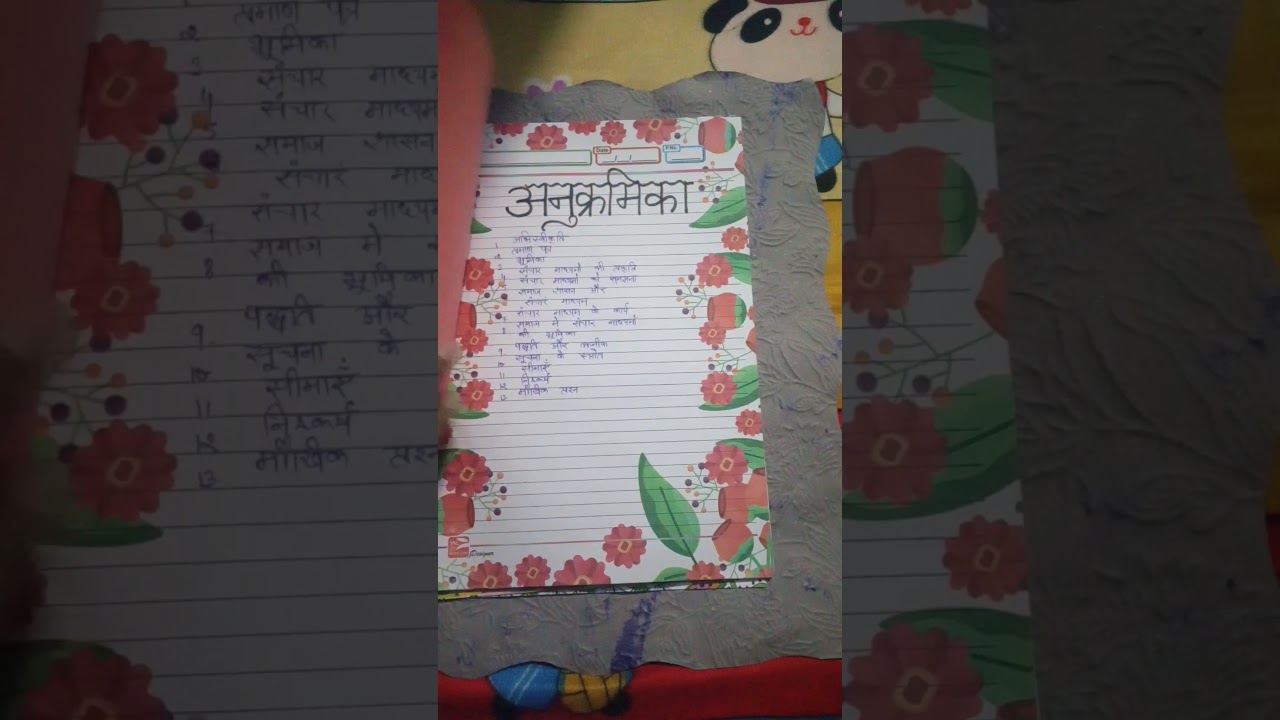 Date
P.No.
अनुक्रमिका
अभिस्वीकृति
1. प्रमाण पत्र
2. भूमिका
3. संचार माध्यमो की प्रकृति
4. संचार माध्यमों की
समाज शासन और
संचार माध्यम
संचार माध्यम के कार्य
7. समाज मे संचार माध्यमों
8. की भूमिका
पद्धति और तकनीक
9. सूचना के स्त्रोत
10. सीमाएँ
11. निष्कर्ष
12. मौखिक प्रश्न
13
Designer